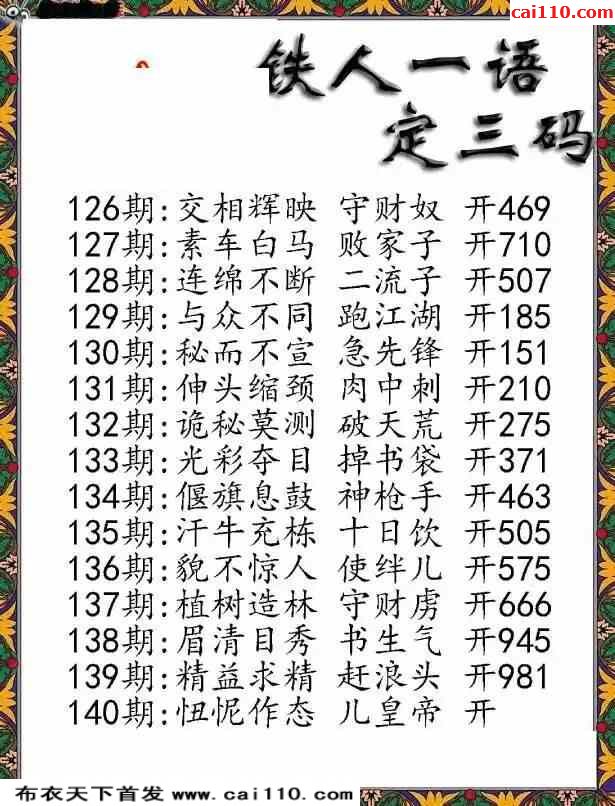 cai110.com
铁人一语
定三码
126期:交相辉映 守财奴 开469
127期:素车白马 败家子 开710
128期:连绵不断 二流子 开507
129期:与众不同 跑江湖 开185
130期:秘而不宣 急先锋 开151
131期:伸头缩颈 肉中刺 开210
132期:诡秘莫测 破天荒 开275
133期:光彩夺目 掉书袋 开371
134期:偃旗息鼓 神枪手 开463
135期:汗牛充栋 十日饮 开505
136期:貌不惊人 使绊儿 开575
137期:植树造林 守财虏 开666
138期:眉清目秀 书生气 开945
139期:精益求精 赶浪头 开981
140期:忸怩作态 儿皇帝 开
布衣天下首发 www.cai110.com